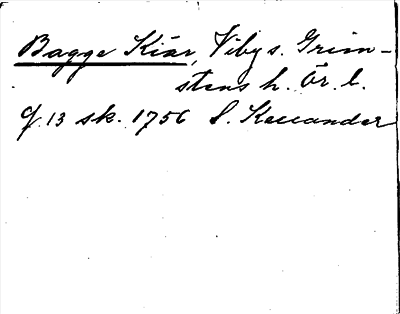 Bagge Kiær, Viby s. Grim-
stens h. Ör. l.
G. 13 sk. 1756 S. Kellander